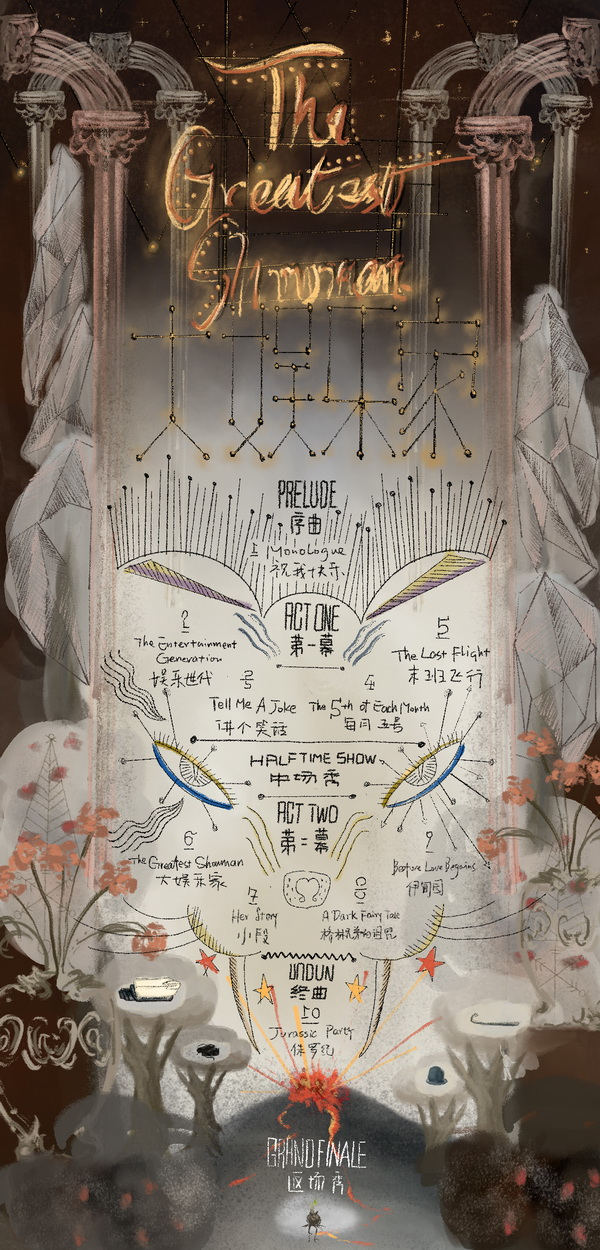 The
Greatest
Showman
大娱乐家
PRELUDE
序曲
1 Monologue
祝我快乐
ACT ONE
第一幕
2
The Entertainment
Generation
娱乐世代
3
Tell Me A Joke
讲个笑话
4
The 5th of Each Month
每月五号
5
The Last Flight
末班飞行
HALFTIME SHOW
中场秀
ACT TWO
第二幕
6
The Greatest Showman
大娱乐家
7
Her Story
小段
8
A Dark Fairy Tale
9
Before Love Begains
伊甸园
UNDUN
终曲
10
Jurassic Party
侏罗纪
GRAND FINALE
返场秀